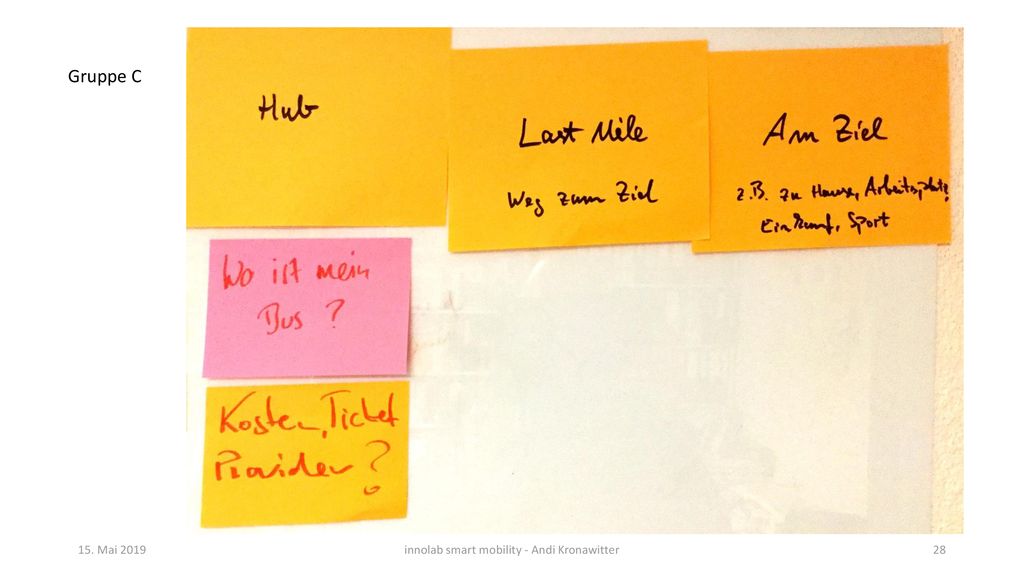 Gruppe C
Hub
Last Mile
Weg zum Ziel
Am Ziel
z.B. zu Hause, Arbeitsplatz,
Einkauf, Sport
Wo ist mein
Bus ?
Kosten, Ticket
Provider ?
15. Mai 2019
innolab smart mobility - Andi Kronawitter
28